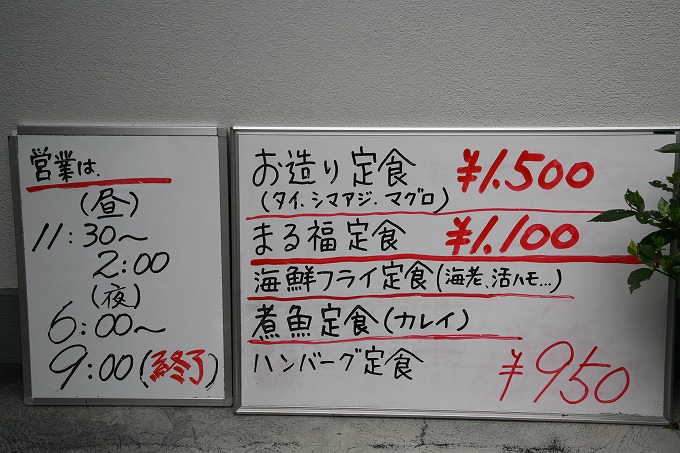 営業は、
(昼)
11:30〜
2:00
(夜)
6:00〜
9:00(終了)
お造り定食 ¥1.500
(タイ、シマアジ、マグロ)
まる福定食 ¥1.100
海鮮フライ定食(海老、活ハモ…)
煮魚定食(カレイ)
ハンバーグ定食 ¥950